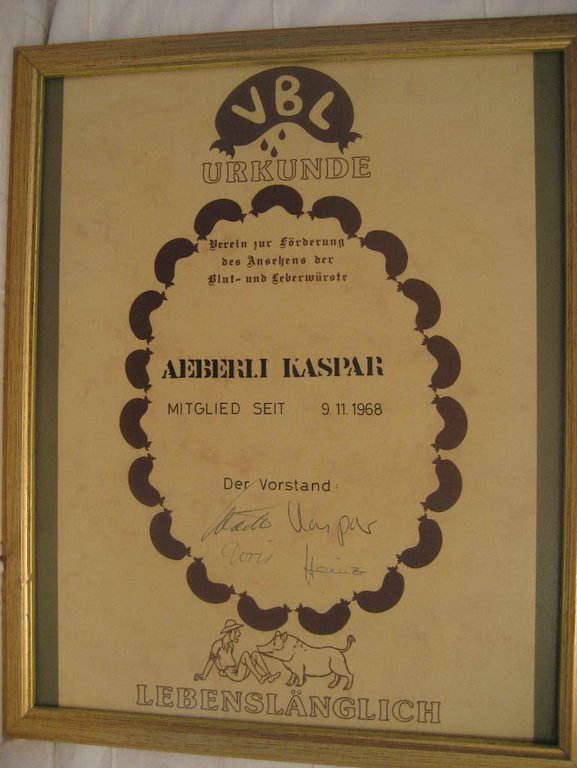 VBL
URKUNDE
Verein zur Förderung
des Ansehens der
Blut- und Leberwürste
AEBERLI KASPAR
MITGLIED SEIT 9.11.1968
Der Vorstand:
Kaspar
Doris Heinz
LEBENSLÄNGLICH